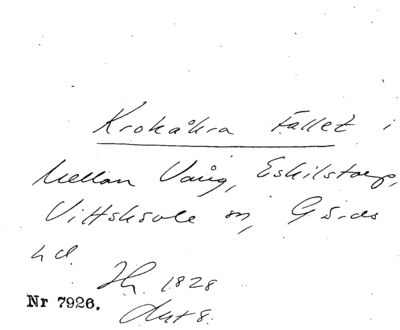 Krokåkra Fallet i
Mellan Vång, Eskilstorp,
Vittskövle
h d.
1828
Nr 7926.